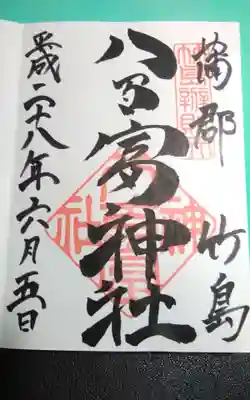 蒲郡 竹島
八百富神社
平成二十八年六月五日